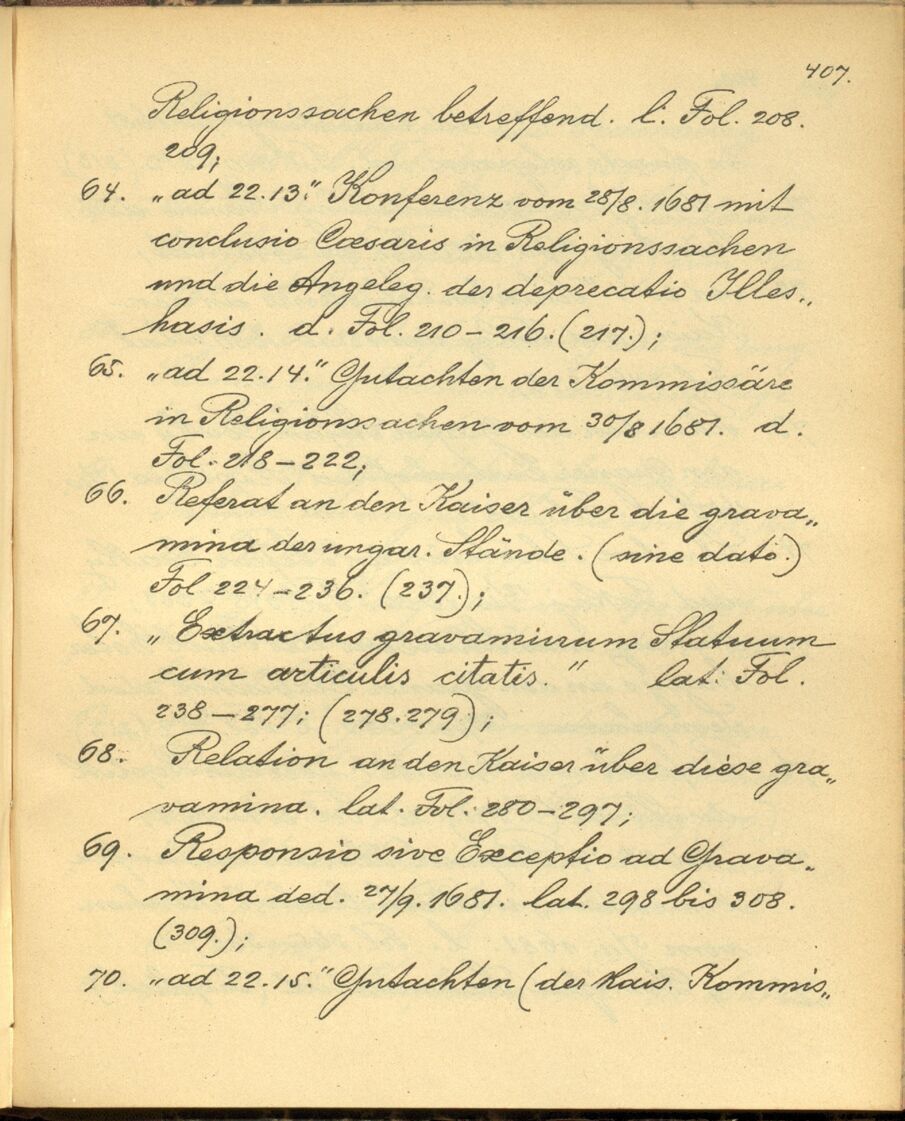 407.
Religionssachen betreffend. l. Fol. 208.
209;
64. „ad 22.13.“ Konferenz vom 28/8. 1681 mit
conclusio Cæsaris in Religionssachen
und die Angeleg. der deprecatio Illes„
hasis. d. Fol. 210–216. (217.);
65. „ad 22.14.“ Gutachten der Kommissäre
in Religionssachen vom 30/8 1681. d.
Fol. 218–222;
66. Referat an den Kaiser über die grava„
mina der ungar. Stände. (sine dato.)
Fol 224–236. (237.);
67. „Extractus gravaminum Statuum
cum articulis citatis.“ lat: Fol.
238–277; (278.279);
68. Relation an den Kaiser über diese gra„
vamina. lat. Fol. 280–297;
69. Responsio sive Exceptio ad Grava„
mina ded. 27/9. 1681. lat. 298 bis 308.
(309.);
70. „ad 22.15.“ Gutachten (der kais. Kommis„